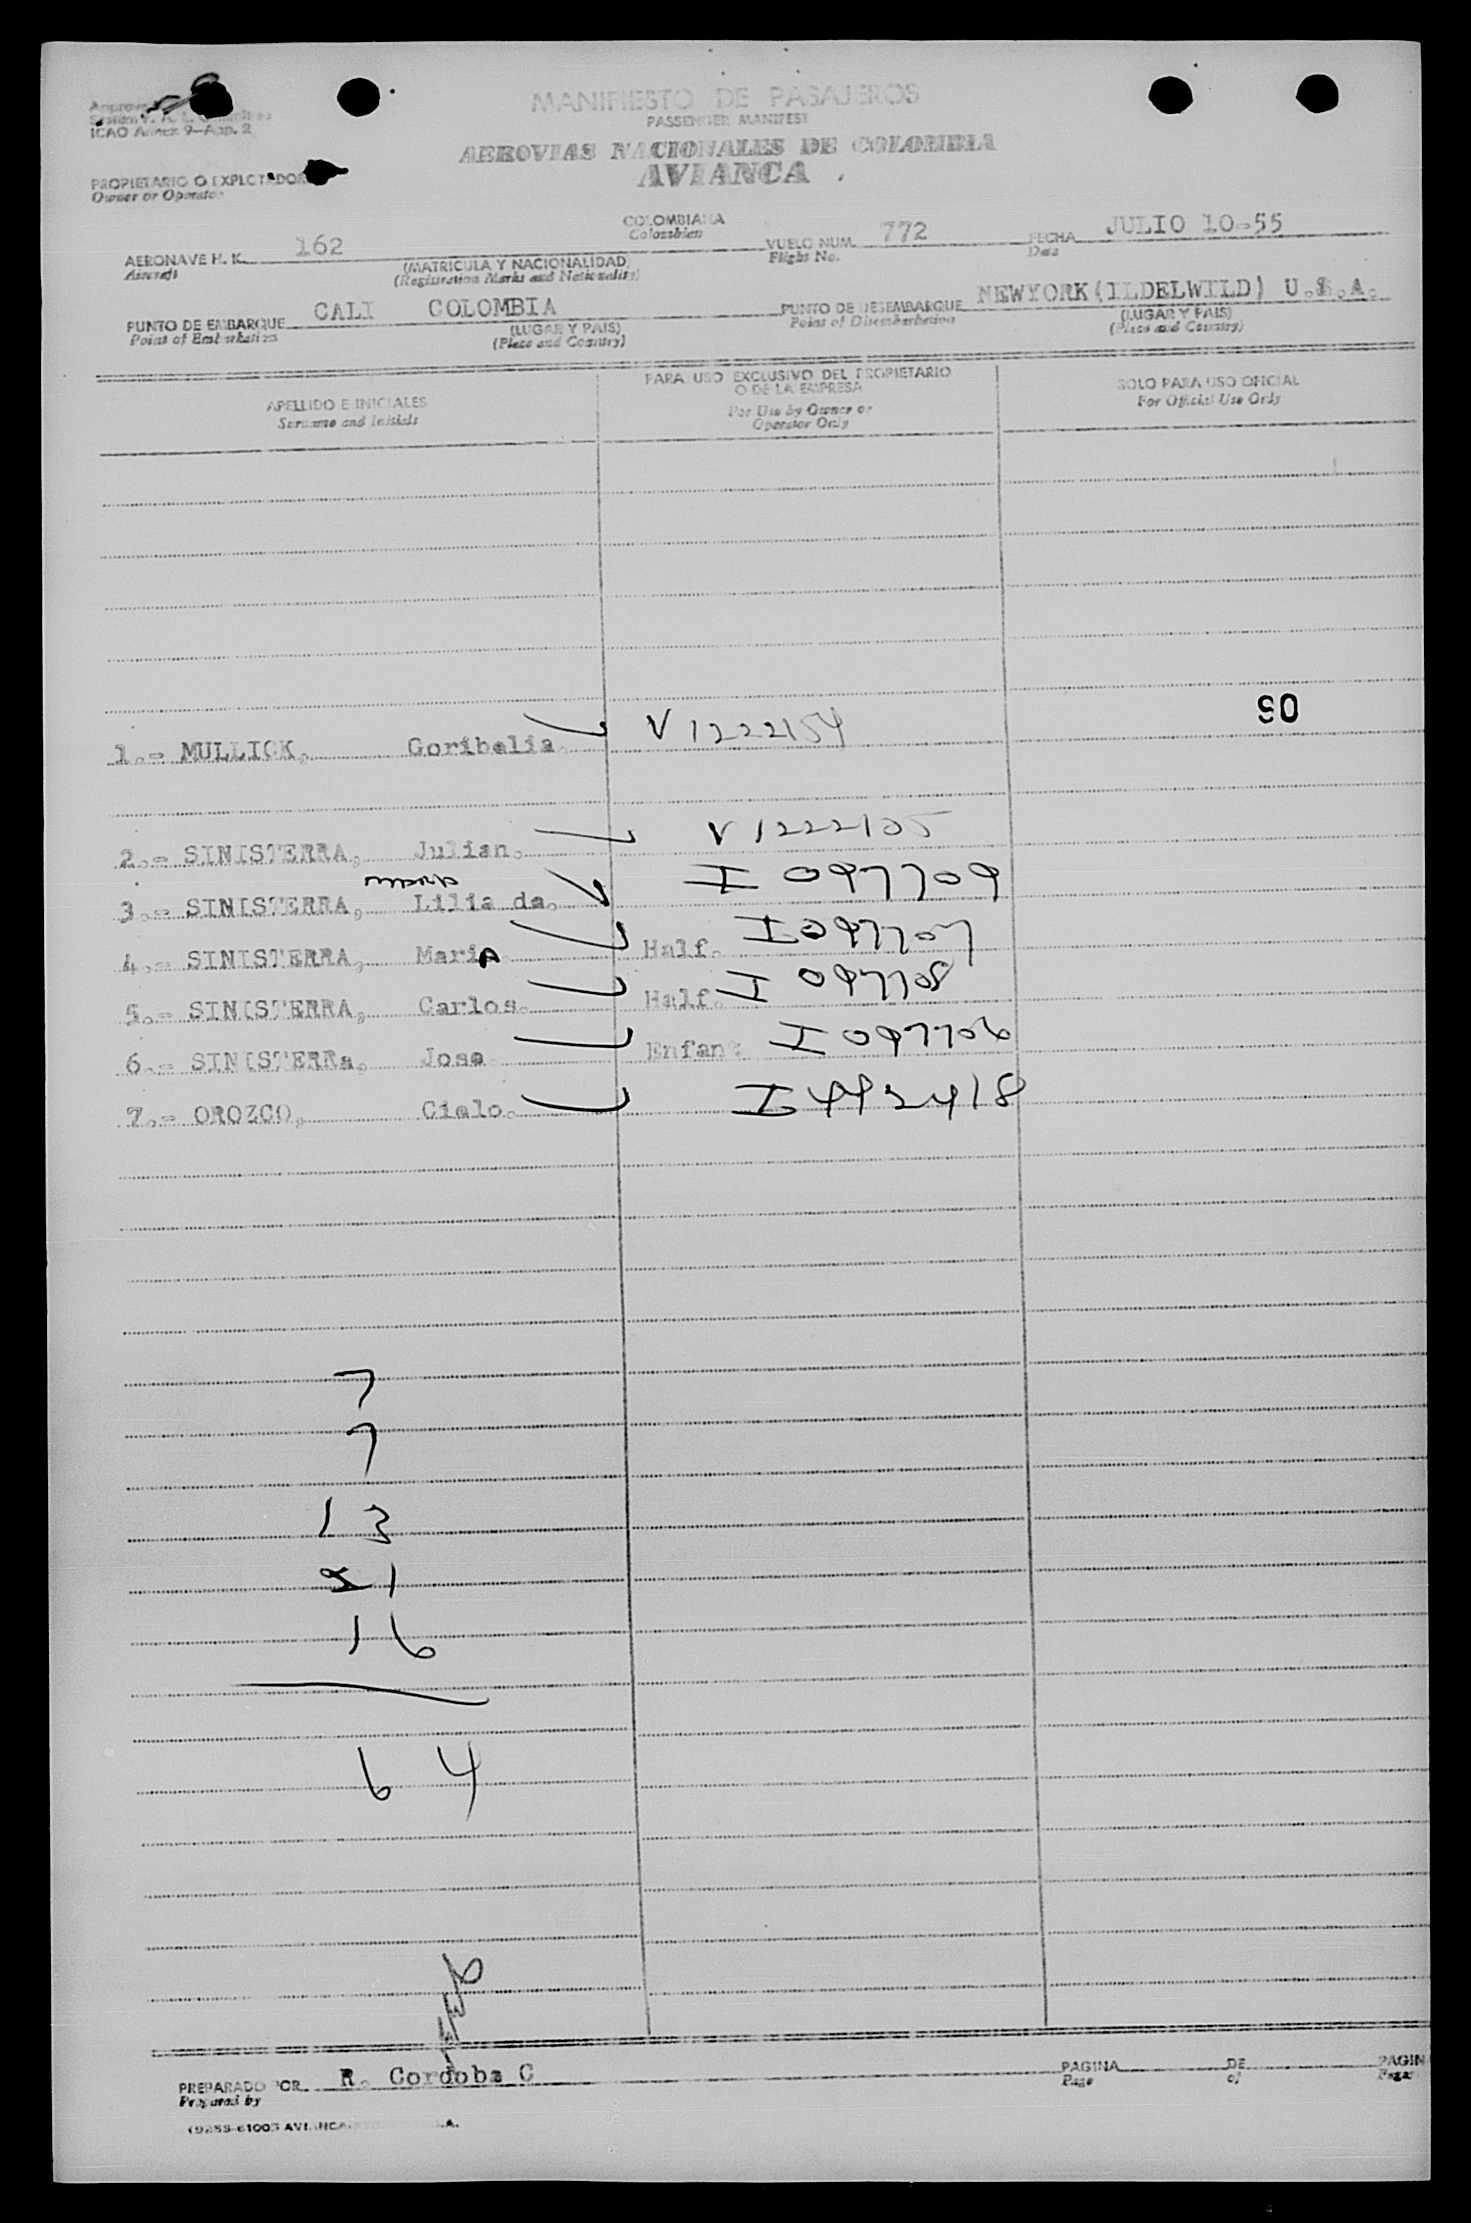 ICAO Annex 9-App. 2
MANIFIESTO DE PASAJEROS
PASSENGER MANIFEST
AEROVIAS NACIONALES DE COLOMBIA
AVIANCA
PROPIETARIO O EXPLOTADOR
Owner or Operator
COLOMBIANA
Colombian
AERONAVE H. K. 162
Aircraft
(MATRICULA Y NACIONALIDAD)
(Registration Marks and Nationality)
VUELO NUM. 772
Flight No.
FECHA JULIO 10-55
Date
PUNTO DE EMBARQUE CALI COLOMBIA
Point of Embarkation
(LUGAR Y PAIS)
(Place and Country)
PUNTO DE DESEMBARQUE NEWYORK(ILDELWILD) U.S.A.
Point of Disembarkation
(LUGAR Y PAIS)
(Place and Country)
APELLIDO E INICIALES
Surname and Initials
PARA USO EXCLUSIVO DEL PROPIETARIO
O DE LA EMPRESA
For Use by Owner or
Operator Only
SOLO PARA USO OFICIAL
For Official Use Only
90
1.- MULLICK, Goribelia. V 1222154
2.- SINISTERRA, Julian. V 1222105
maria
3.- SINISTERRA, Lilia de. I 097709
4.- SINISTERRA, MariA Half. I 097707
5.- SINISTERRA, Carlos. Half. I 097708
6.- SINISTERRa, Jose Enfant I 097706
7.- OROZCO, Cielo. I 492418
7
7
13
21
16
64
PREPARADO POR R. Cordoba C
Prepared by
PAGINA DE PAGIN
Page of Page